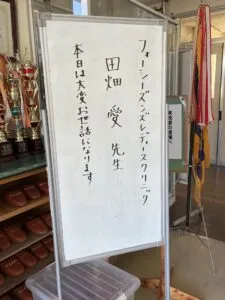 フォーシーズンズレディースクリニック
田畑 愛 先生
本日は大変お世話になります